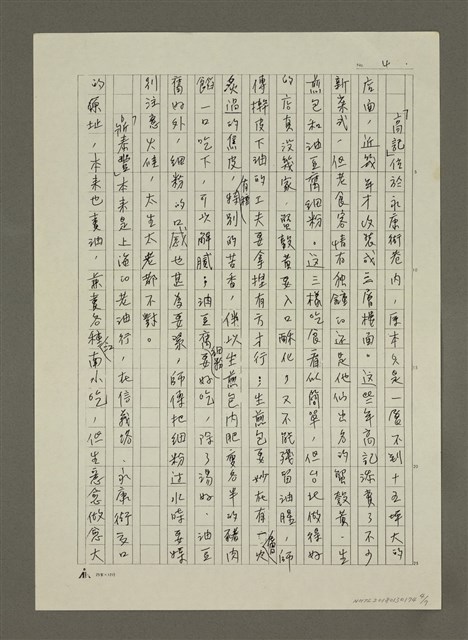 「高記」位於永康街巷內，原本只是一個不到十五坪大的
店面，近幾年才改裝成三層樓面。這些年高記添賣了不少
新菜式，但老食客情有獨鍾的還是他們出名的蟹殼黃、生
煎包和油豆腐細粉。這三樣吃食看似簡單，但台北做得好
的店真沒幾家，蟹殼黃要入口酥化，又不能殘留油膩，師
傅擀皮下油的工夫要拿捏有方才行；生煎包要妙在有一火
炙過的焦皮，有種特別的苦香，伴以生煎包內肥瘦各半的豬肉
餡一口吃下，可以解膩；油豆腐細粉要好吃，除了湯好、油豆
腐好外，細粉的口感也甚為要緊，師傅把細粉過水時要特
別注意火候，太生太老都不對。
「鼎泰豐」本來是上海的老油行，在信義路、永康街交口
的原址，本來也賣油，兼賣各種江南小吃，但生意愈做愈大
4